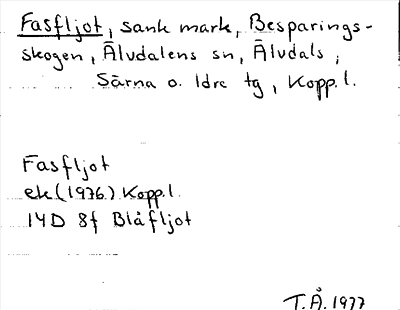 Fasfljot, sank mark, Besparings-
skogen, Älvdalens sn, Älvdals,
Särna o. Idre tg, Kopp.l.
Fasfljot
ek (1976) Kopp.l.
14D 8f Blåfljot
T.Å. 1977